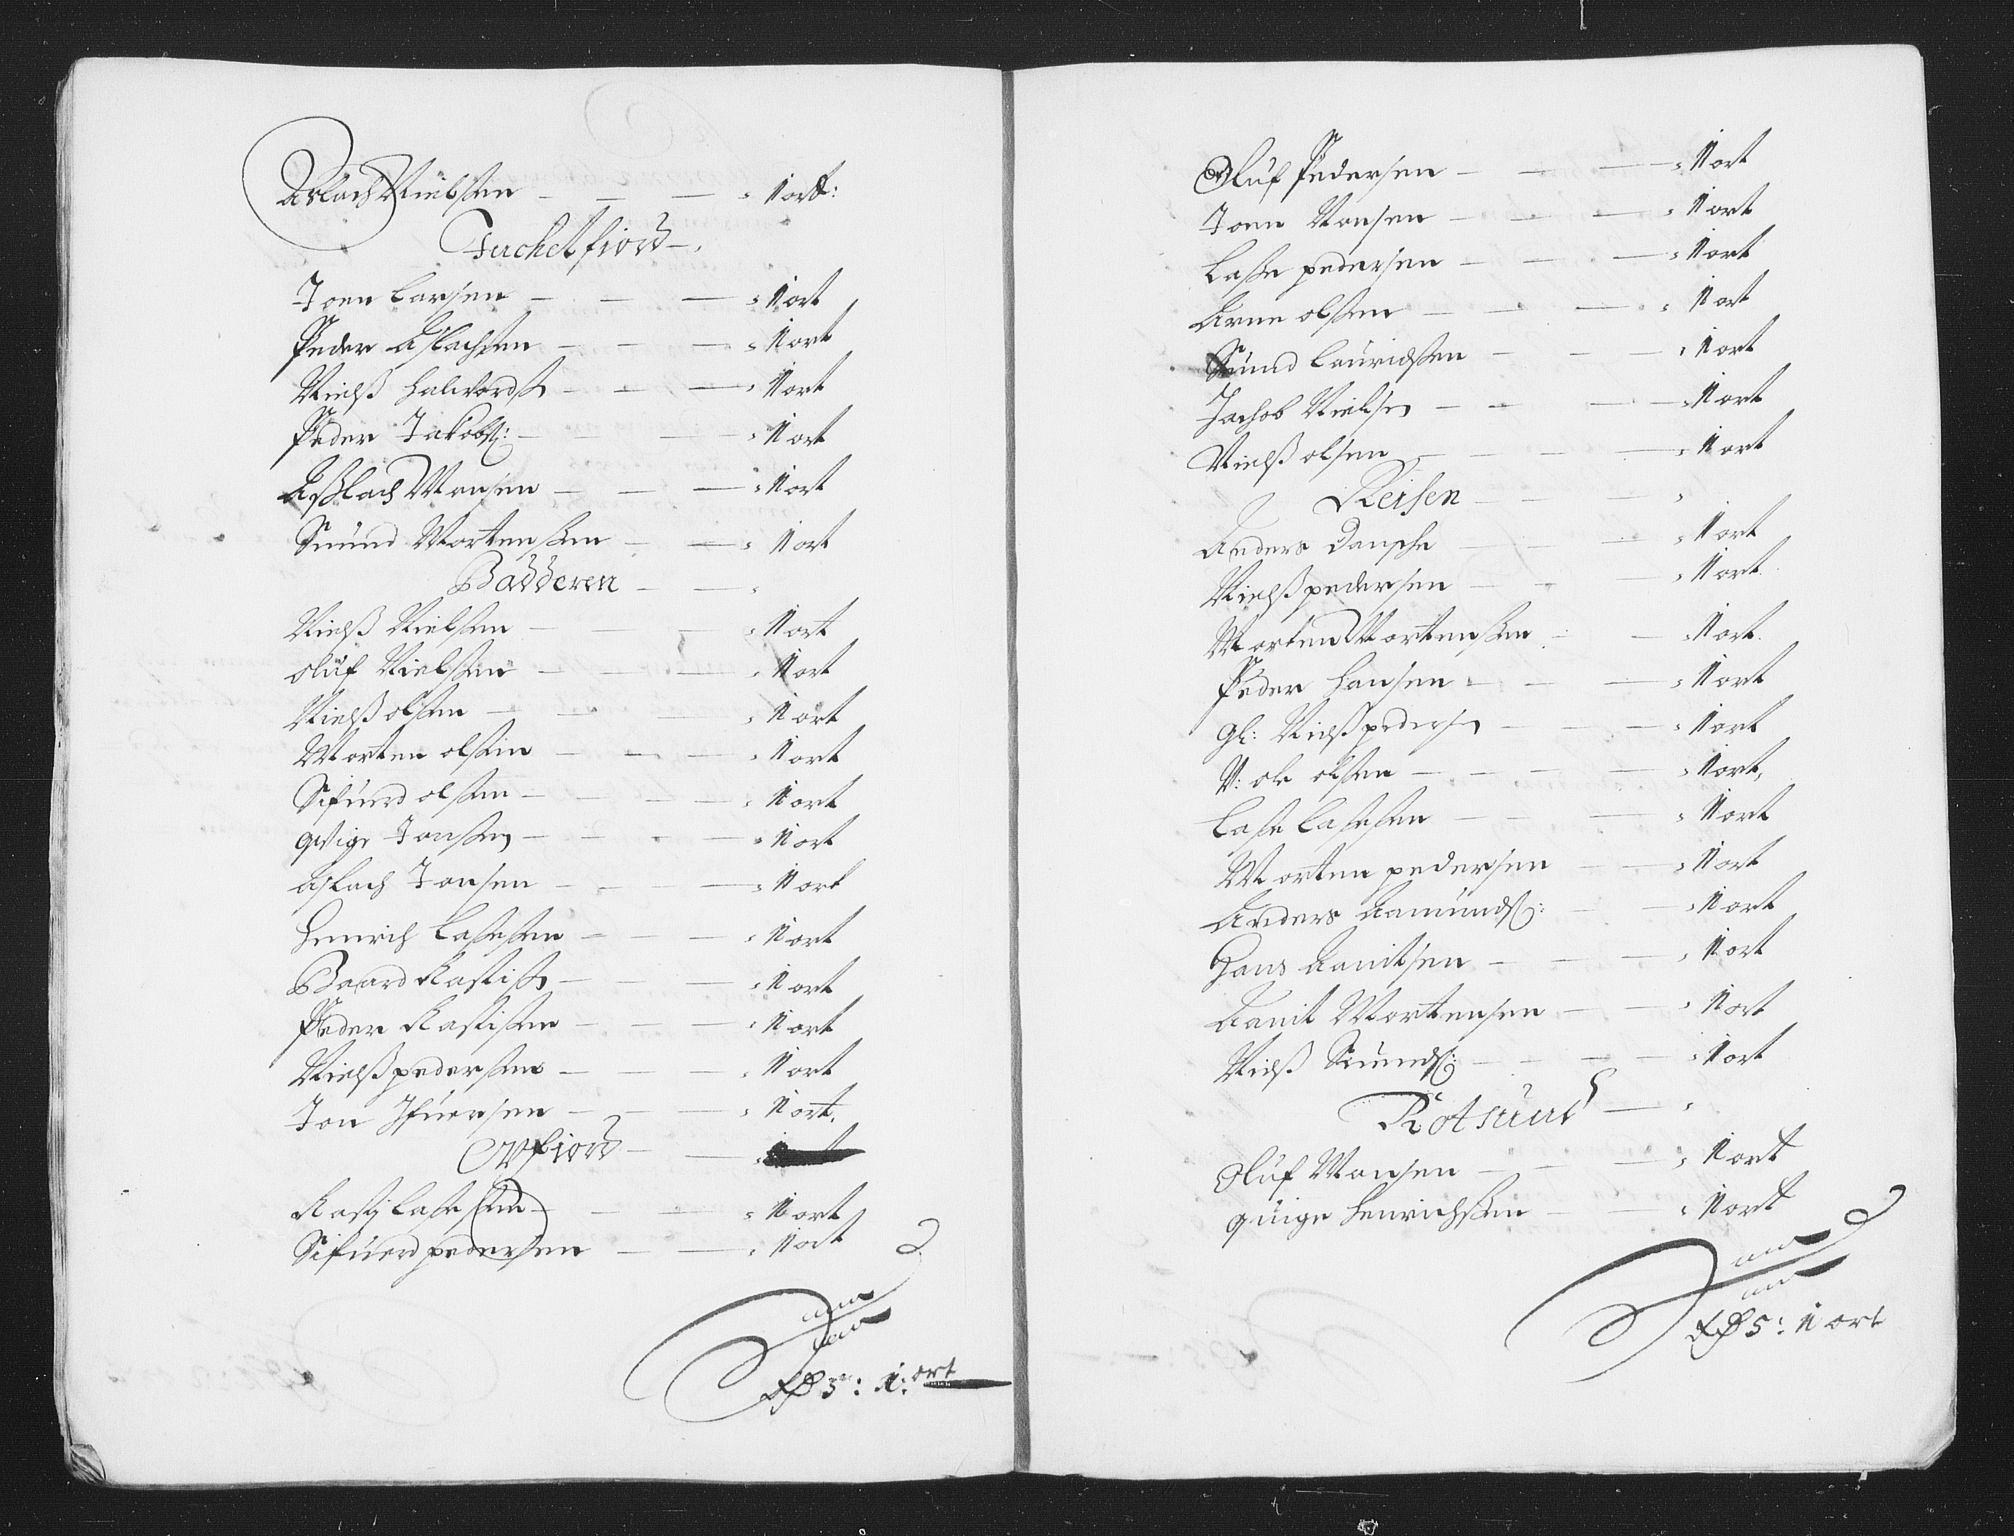 Aslach Nielsen — — — 1 ort:
Juchelfiord —
Joen Larsen — — — 1 ort
Peder Aslachsen — — — 1 ort
Nielß Halvordß — — — 1 ort
Peder Jakobs: — — — 1 ort
Aßlach Monsen — — — 1 ort
Siuind Mortensen — — 1 ort
Badderen — —
Nielß Nielsen — — — 1 ort
Oluf Nielsen — — — 1 ort
Nielß olsen — — — 1 ort
Morten olsen — — — 1 ort
Sifuerd olsen — — — 1 ort
Qvige Jonsen — — — 1 ort
Aslach Jonsen — — — 1 ort
Henrich Lassesen — — — 1 ort
Baard Rastiß — — — 1 ort
Peder Rastisen — — — 1 ort
Nielß pedersen — — — 1 ort
Jon Ifuersen — — — 1 ort.
Oxfiord — —
Rasti Lassesen — — — 1 ort
Sifuerd pedersen — — 1 ort
5: 1: ort
Oluf Pedersen — — — 1 ort
Joen Monsen — — — 1 ort
Lasse pedersen — — — 1 ort
Arne olsen — — — 1 ort
Siuind Lauridsen — — — 1 ort
Jachob Nielsen — — — 1 ort
Nielß olsen — — — 1 ort
Reisen — —
Anders Dansche — — — 1 ort
Nielß pedersen — — — 1 ort
Morten Mortensen — — 1 ort
Peder Hansen — — — 1 ort
gl: Nielß pedersen — — — 1 ort
V: ole olsen — — — 1 ort,
Lasse Lassesen — — — 1 ort
Morten pedersen — — 1 ort
Anders Aamunds: — — 1 ort
Hans Aanitsen — — — 1 ort
Aanit Mortensen — — 1 ort
Nielß Siuinds: — — — 1 ort
Rotsund —
Oluf Monsen — — — 1 ort
quige Henrichsen — — 1 ort
5: 1 ort